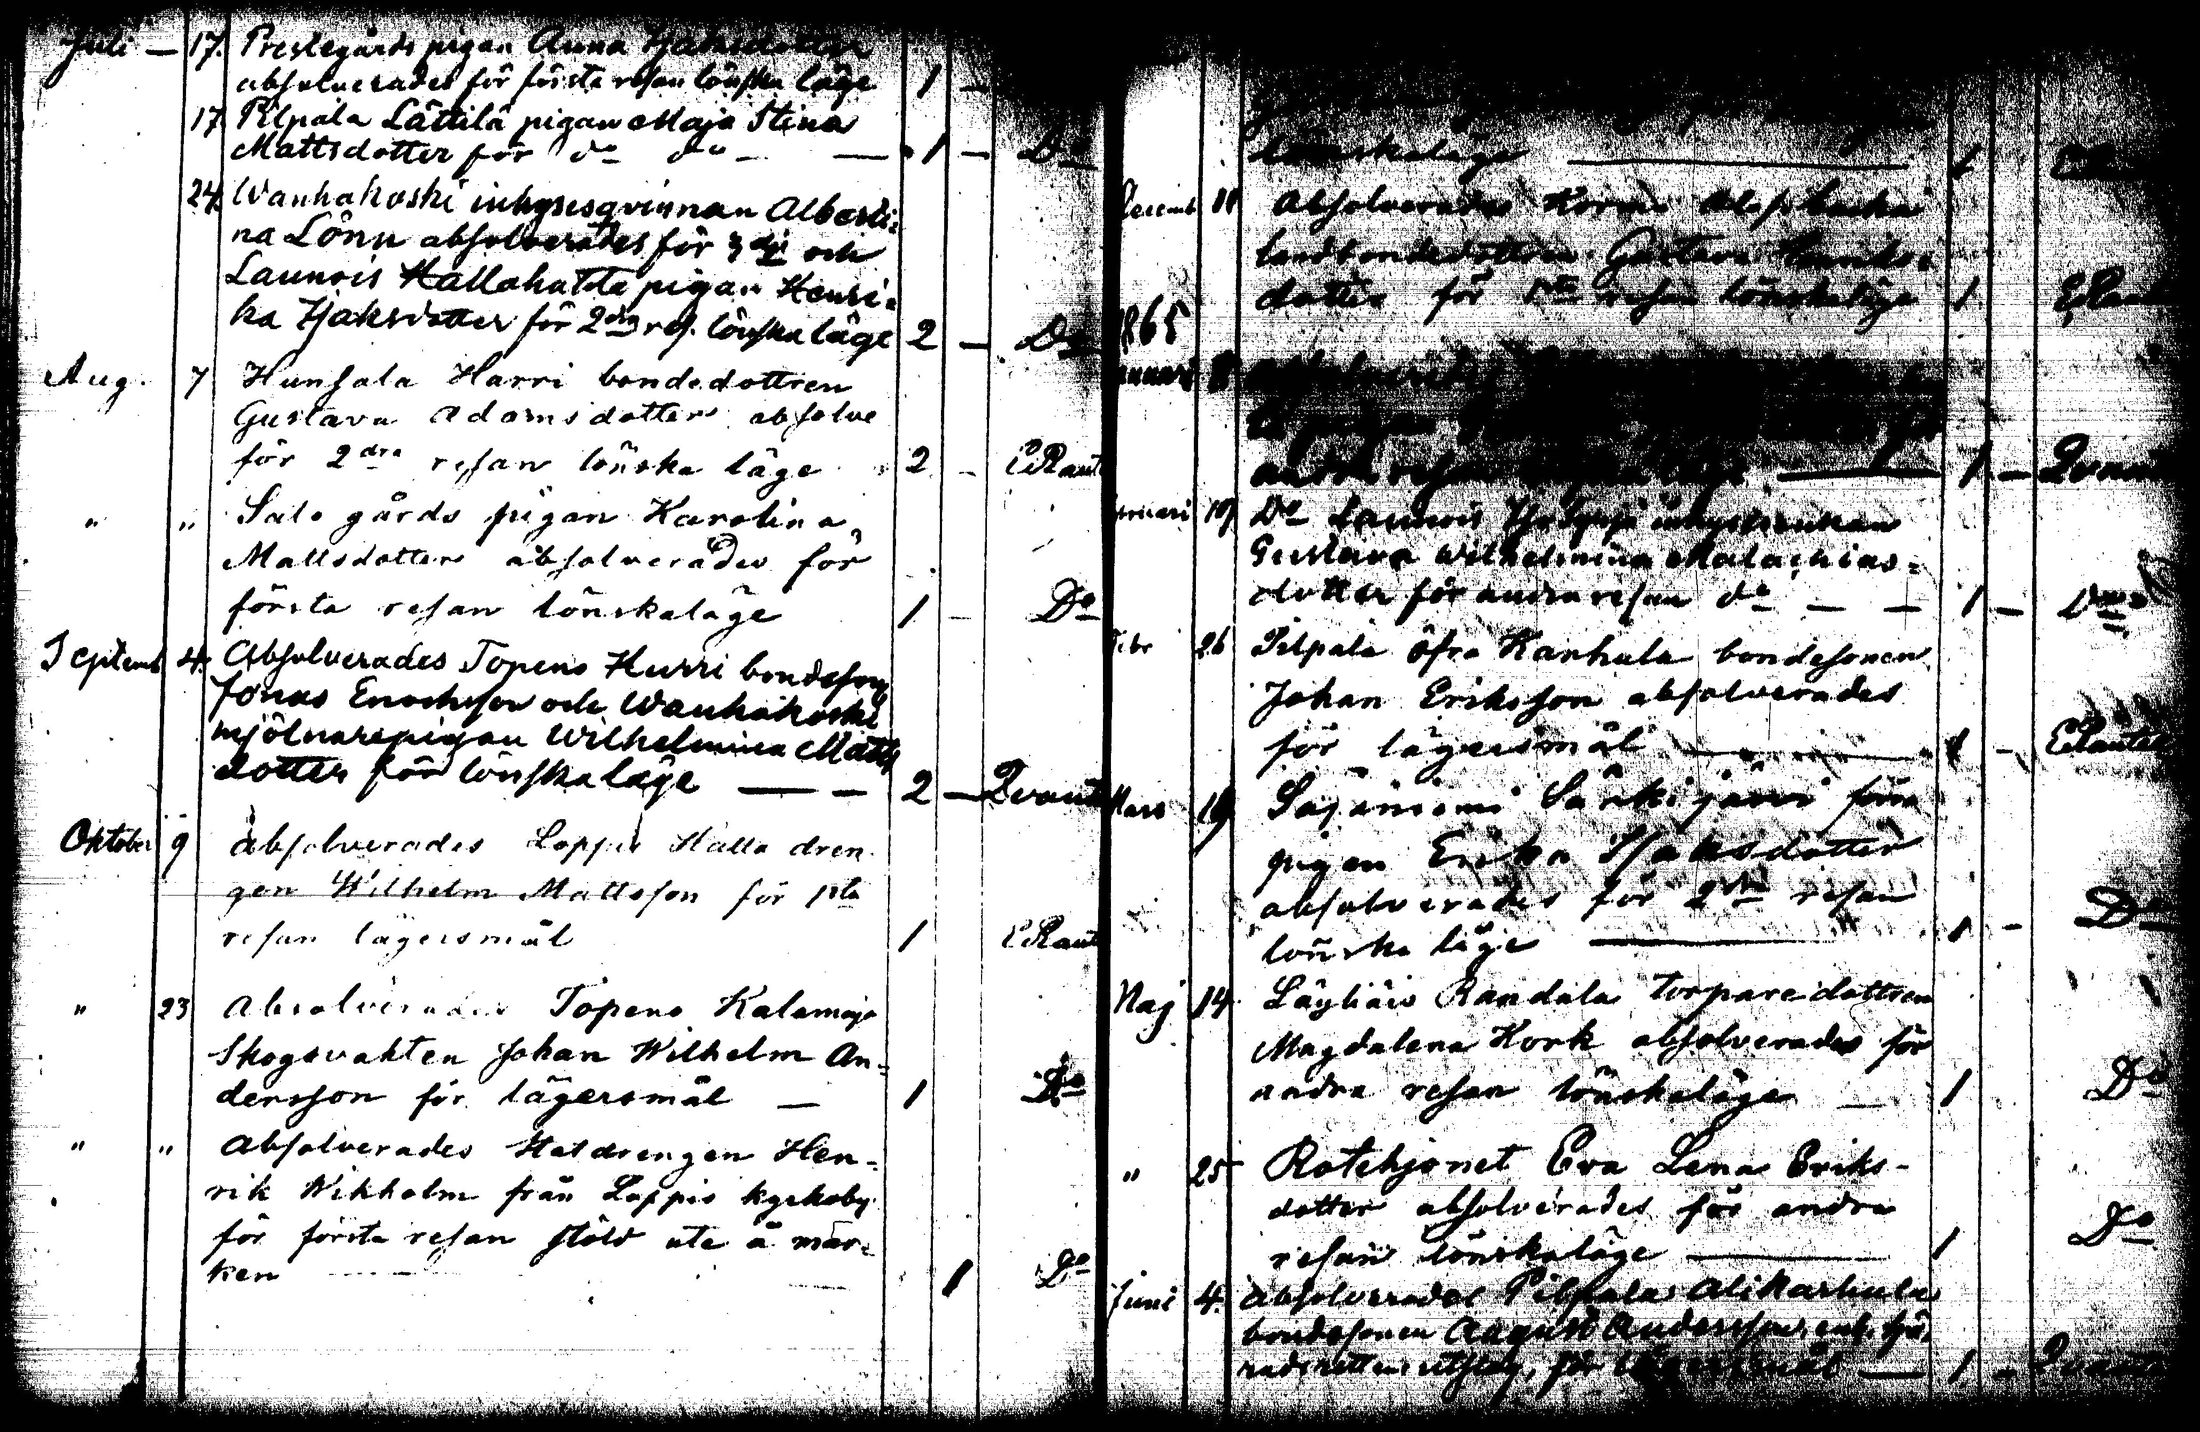 Juli — 17. Prestegårds pigan Anna Isaksdotter
absolverades för första resan lönska läge 1 —
17 Pilpala Lättilä pigan Maja Stina
Mattsdotter för do do — — 1 — Do
24. Wanhakoski inhysesqvinnan Alberti-
na Lönn absolverades för 3dje och
Launois Hallahatta pigan Henri-
ka Isaksdotter för 2dra res. lönska läge 2 — Do
Aug. 7 Hunsala Harri bondedottren
Gustava Adamsdotter absolve
för 2dra resan lönska läge 2 — ERaut
" " Salo gårds pigan Karolina
Mattsdotter absolverades för
första resan lönskaläge 1 — Do
Septemb 4. Absolverades Topeno Hurri bondeson
Jonas Enochsson och Wanhakoski
mjölnarepigan Wilhelmina Matts
dotter för lönskaläge — — 2 — Qvant
Oktober 9 absolverades Loppis Halla dren
gen Wilhelm Mattsson för 1sta
resan lägersmål 1 ERaut
" 23 Absolverades Topeno Kalamaja
Skogsvakten Johan Wilhelm An-
dersson för lägersmål — 1 Do
" " Absolverades Statdrengen Hen-
rik Wikholm från Loppis kyrkoby
för första resan stöld ute å mar-
ken 1 Do
lönskaläge 1
Decemb 11 Absolverades Kormu
landbondedottren Gustava
dotter för 1sta resan lönskaläge 1 ERaut
1865
Januari 8
andra resan 1 — Qvant
Februari 19 Do Launois inhysesenkan
Gustava Wilhelmina Malachias-
dotter för andra resan do — — 1 —
Febr 26 Pilpala öfre Karhula bondesonen
Johan Eriksson absolverades
för lägersmål 1 — ERautel
Mars 19 Sajaniemi Särkijärvi förra
pigan Erika Isaksdotter
absolverades för 2dra resan
lönska läge 1 — Do
Maj 14. Läyliäis Randala torparedottren
Magdalena Kork absolverades för
andra resan lönskaläge — 1 Do
" 25 Rotehjonet Eva Lena Eriks-
dotter absolverades för andra
resan lönskaläge 1 Do
Juni 4. absolverades Pilpala Alikarhula
bondesonen August Andersson, enl. hä-
radsrättens utslag, för lägersmål — 1 — Qvant